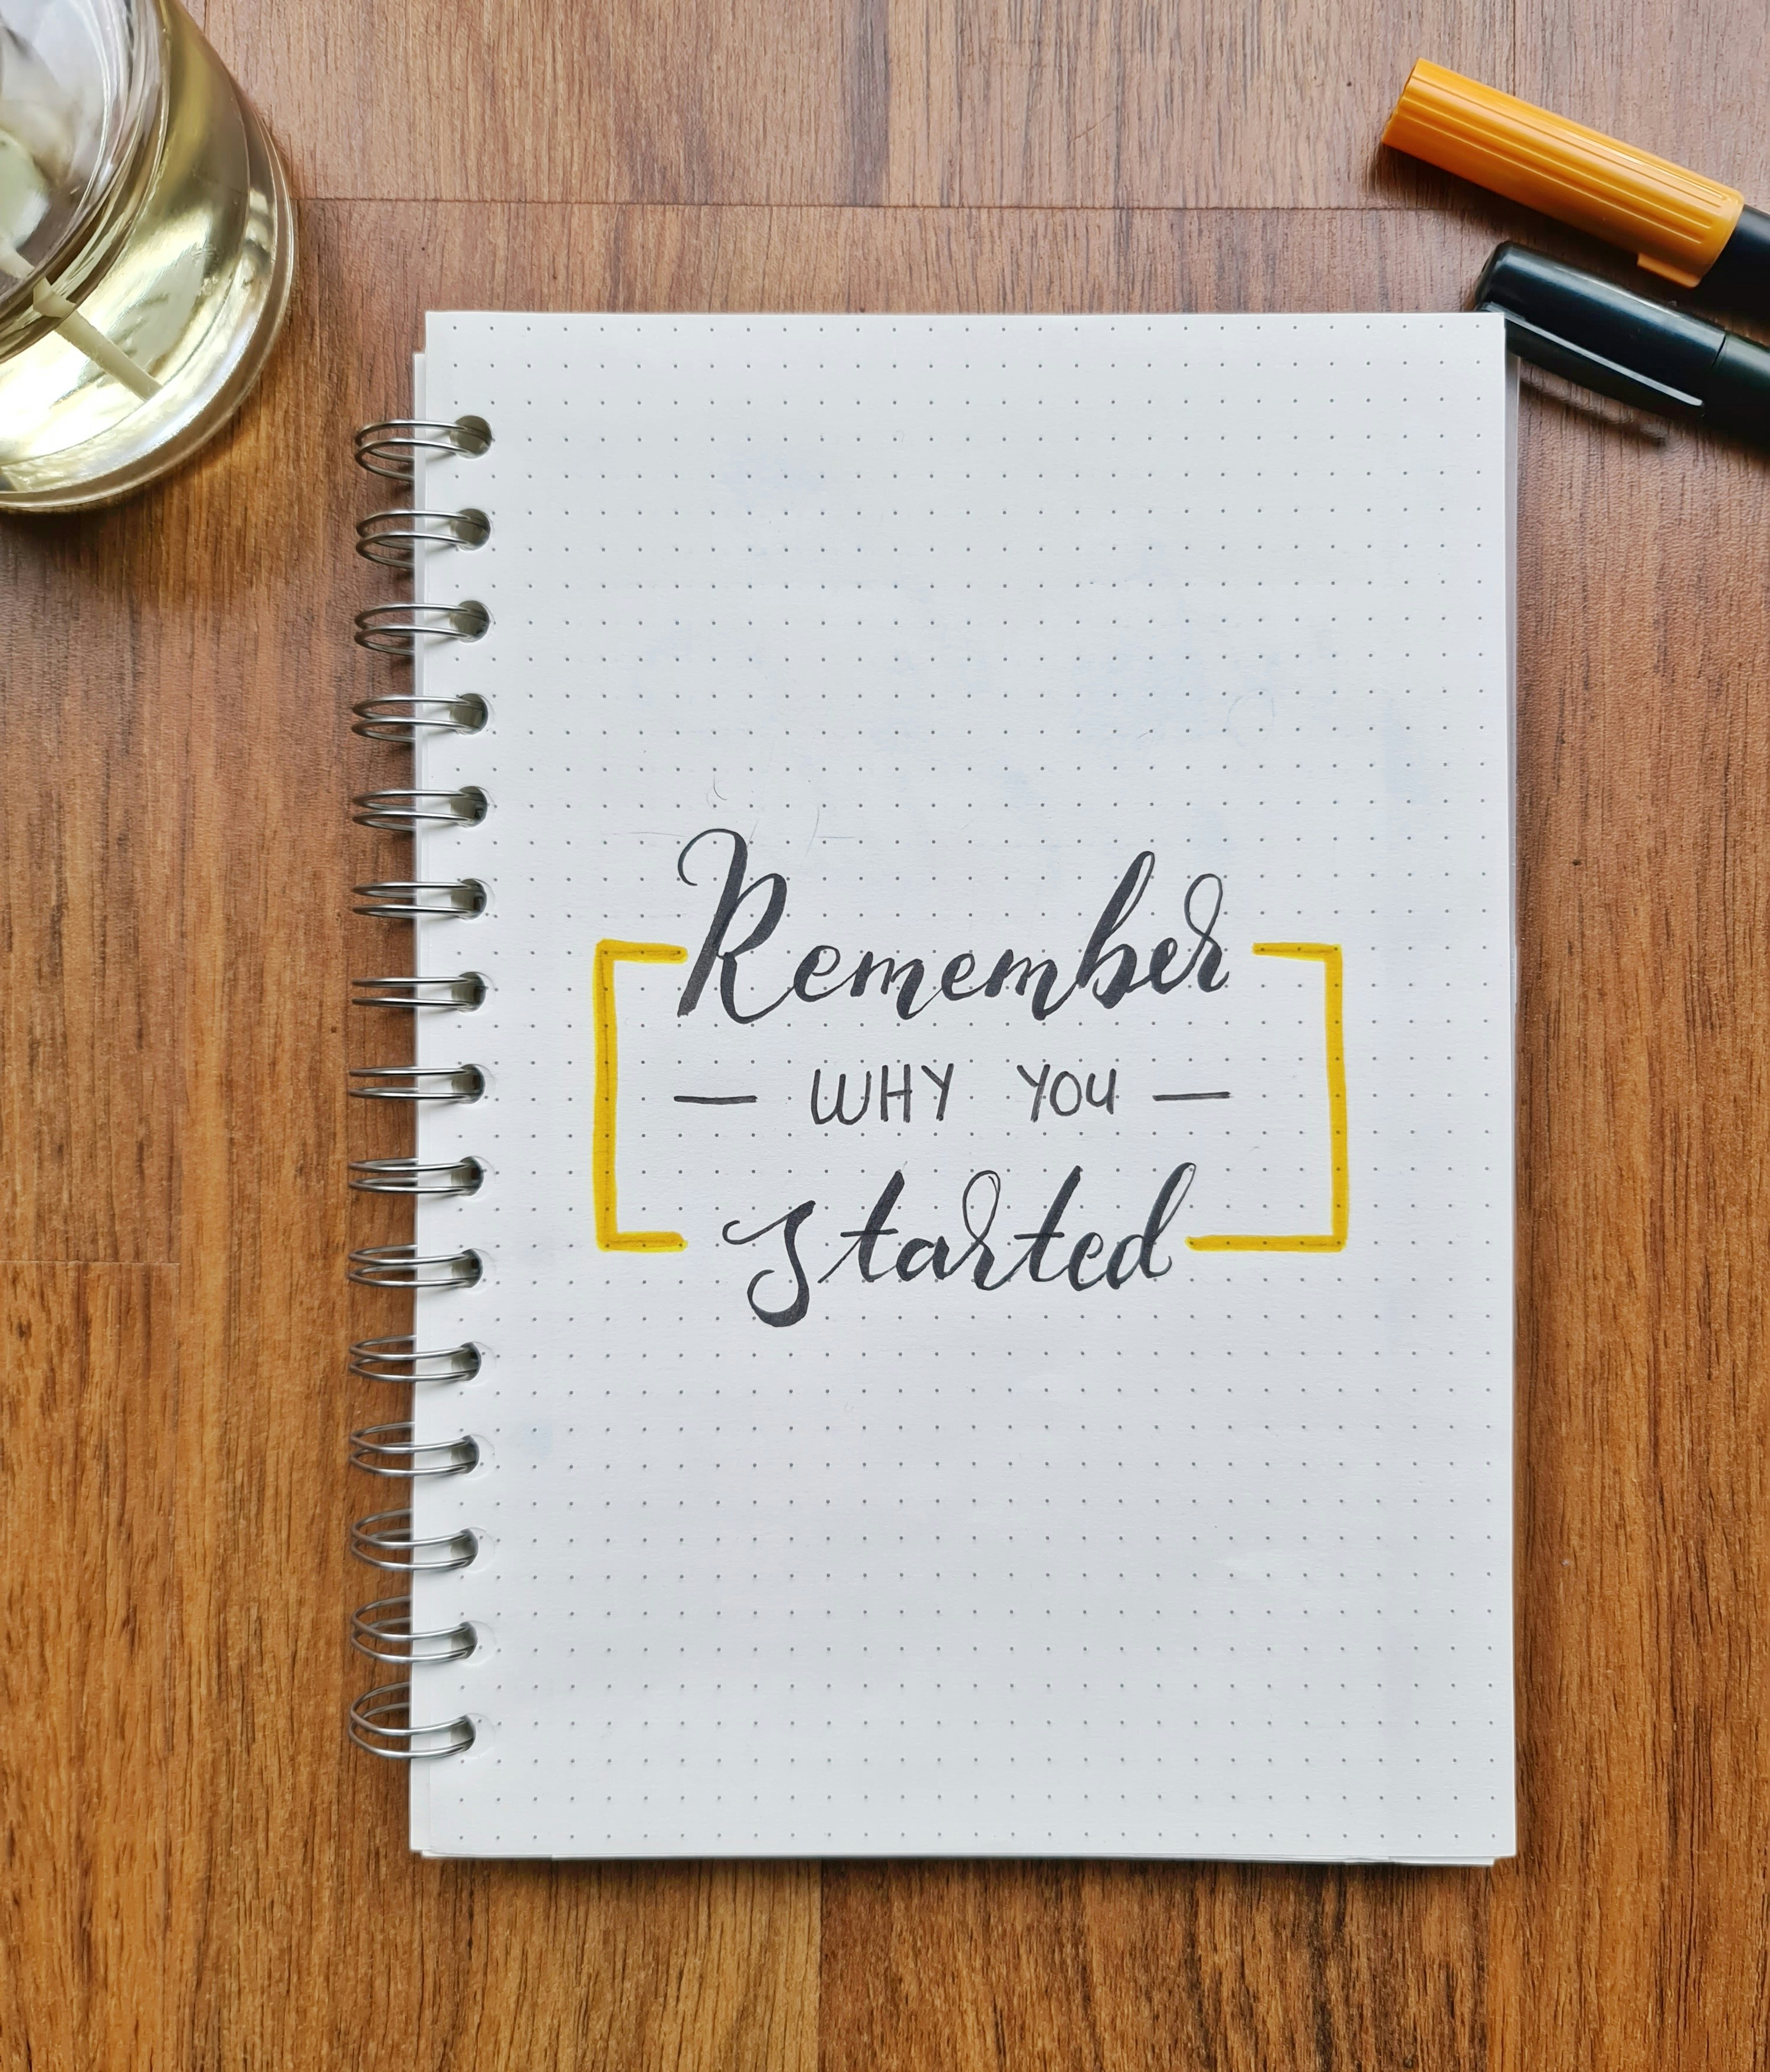 Remember
— WHY YOU —
started